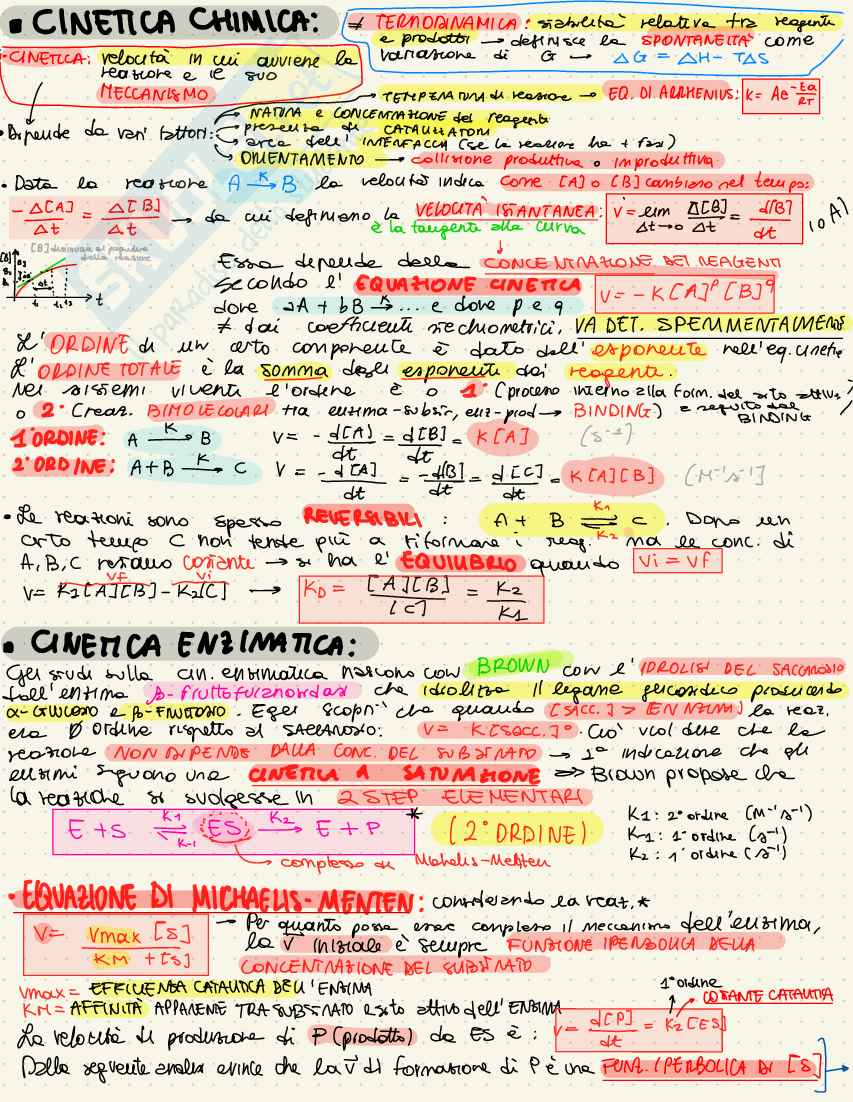 ▪ CINETICA CHIMICA:
≠ TERMODINAMICA: stabilità relativa tra reagente
e prodotti → definisce la SPONTANEITÀ come
variazione di G → ΔG = ΔH - TΔS
• CINETICA: velocità in cui avviene la
reazione e il suo
MECCANISMO
• Dipende da vari fattori:
TEMPERATURA di reazione → EQ. DI ARRHENIUS: K = Ae^-Ea/RT
NATURA e CONCENTRAZIONE dei reagenti
presenza di CATALIZZATORI
area dell'INTERFACCIA (se la reazione ha + fasi)
ORIENTAMENTO → collisione produttiva o improduttiva
• Data la reazione A →K B la velocità indica come [A] o [B] cambiano nel tempo:
-Δ[A]/Δt = Δ[B]/Δt → da cui definiamo la VELOCITÀ ISTANTANEA: V = lim Δt→0 Δ[B]/Δt = d[B]/dt (o A)
è la tangente alla curva
[B]
t
Δt
Essa dipende dalla CONCENTRAZIONE DEI REAGENTI
secondo l'EQUAZIONE CINETICA V = -K[A]^p [B]^q
dove aA + bB →K ... e dove p e q
≠ dai coefficienti stechiometrici, VA DET. SPERIMENTALMENTE
L'ORDINE di un certo componente è dato dall'esponente nell'eq. cinetica
L'ORDINE TOTALE è la somma degli esponenti dei reagenti.
Nei sistemi viventi l'ordine è o 1° (processo interno alla form. del sito attivo)
o 2° (reaz. BIMOLECOLARI tra enzima-substr, enz-prod → BINDING) e seguito dal BINDING
1° ORDINE: A →K B V = - d[A]/dt = d[B]/dt = K[A] (s⁻¹)
2° ORDINE: A+B →K C V = -d[A]/dt = -d[B]/dt = d[C]/dt = K[A][B] [M⁻¹s⁻¹]
• Le reazioni sono spesso REVERSIBILI: A + B ⇌ C K1 K2. Dopo un
certo tempo C non tende più a riformare i reag. ma le conc. di
A, B, C restano costante → si ha l'EQUILIBRIO quando Vi = Vf
Vf Vi
V = K1[A][B] - K2[C] → KD = [A][B]/[C] = K2/K1
▪ CINETICA ENZIMATICA:
Gli studi sulla cin. enzimatica nascono con BROWN con l'IDROLISI DEL SACCAROSIO
dall'enzima β-fruttofuranosidasi che idrolizza il legame glicosidico producendo
α-GLUCOSIO e β-FRUTTOSIO. Egli scoprì che quando [SACC.] > [ENZIMA] la reaz.
era 0 ordine rispetto al SACCAROSIO: V = K[SACC.]°. Ciò vuol dire che la
reazione NON DIPENDE DALLA CONC. DEL SUBSTRATO → 1ª indicazione che gli
enzimi seguono una CINETICA A SATURAZIONE ⇒ Brown propose che
la reazione si svolgesse in 2 STEP ELEMENTARI
E + S ⇌ ES → E + P K1 K-1 K2 * (2° ORDINE)
K1: 2° ordine (M⁻¹s⁻¹)
K-1: 1° ordine (s⁻¹)
K2: 1° ordine (s⁻¹)
→ complesso di Michelis-Menten
• EQUAZIONE DI MICHAELIS-MENTEN: considerando la reaz.*
V = Vmax [S] / KM + [S]
→ Per quanto possa esser complesso il meccanismo dell'enzima,
la V iniziale è sempre FUNZIONE IPERBOLICA DELLA
CONCENTRAZIONE DEL SUBSTRATO
Vmax = EFFICIENZA CATALITICA DELL'ENZIMA
KM = AFFINITÀ APPARENTE TRA SUBSTRATO e sito attivo dell'ENZIMA
1° ordine
COSTANTE CATALITICA
La velocità di produzione di P (prodotto) da ES è: V = d[P]/dt = K2[ES]
Dalla seguente analisi evince che la V di formazione di P è una FUNZ. IPERBOLICA DI [S] →